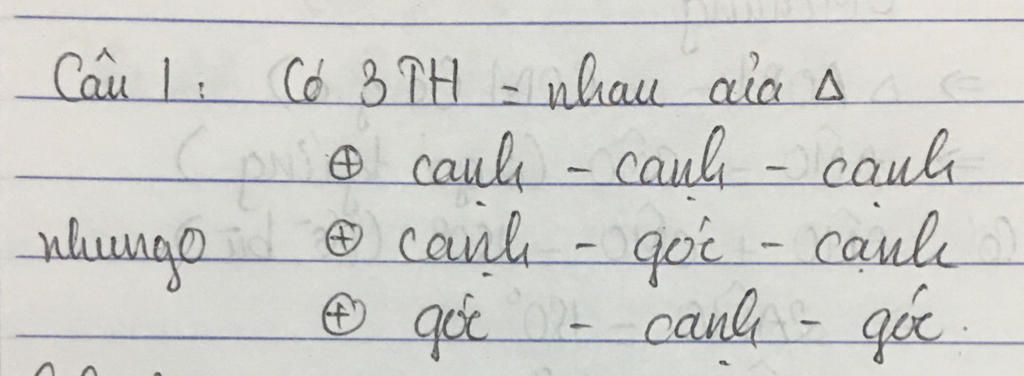 Câu 1: Có 3 TH = nhau của Δ
⊕ cạnh - cạnh - cạnh
nhungo ⊕ cạnh - góc - cạnh
⊕ góc - cạnh - góc.